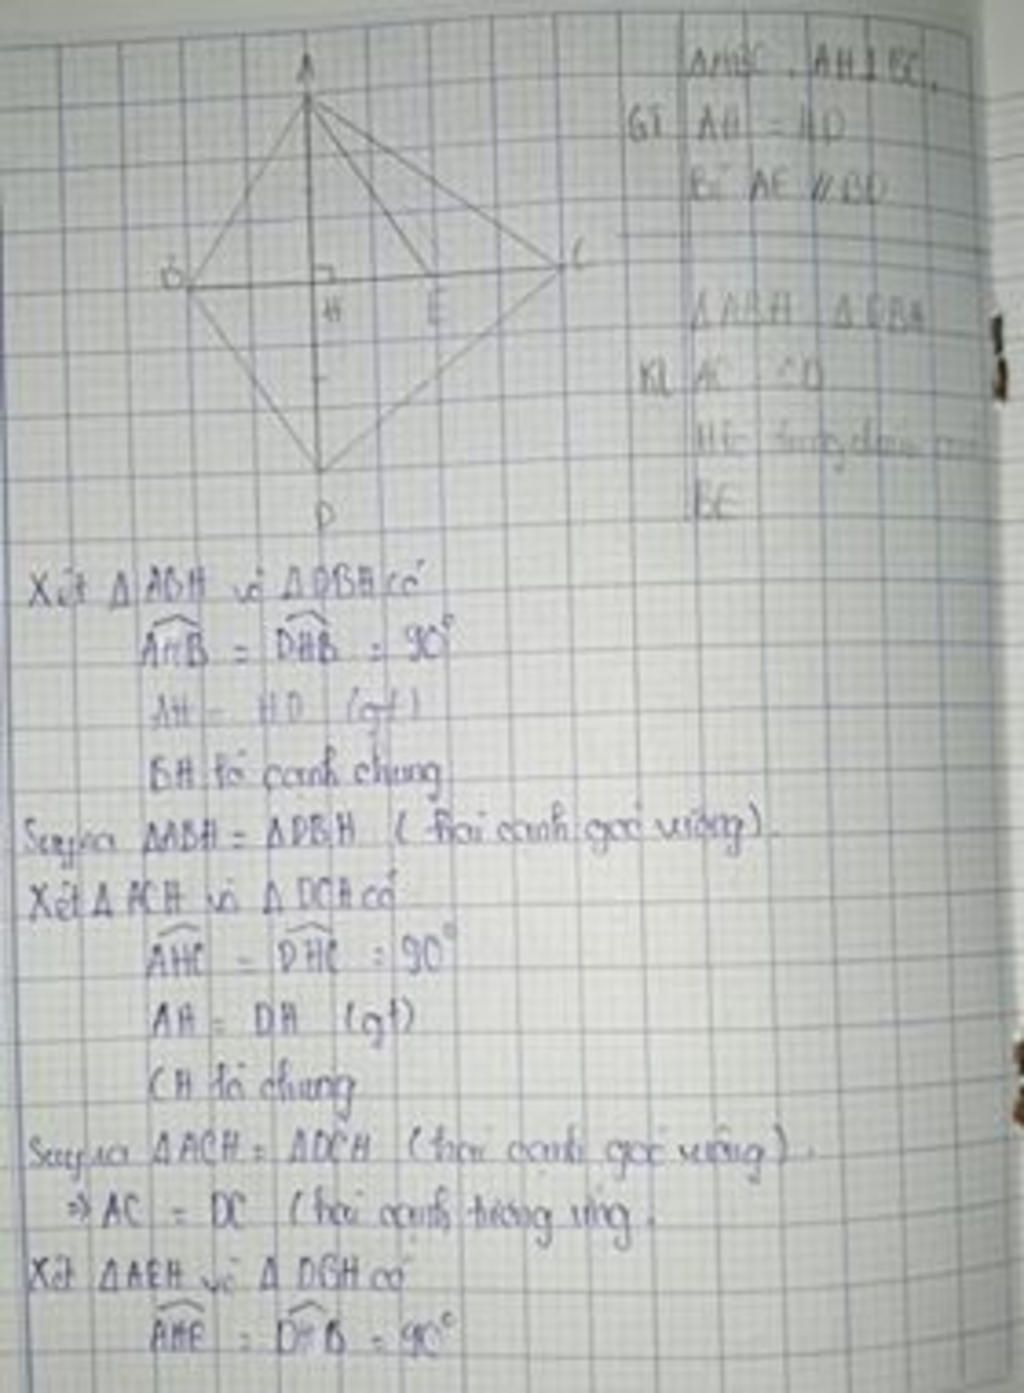 A
B
H
E
C
D
ΔABC, AH ⊥ BC,
GT AH = HD
AE // BD
ΔABH ΔDBH
KL AC CD
BE
Xét ΔABH và ΔDBH có
AHB = DHB = 90°
AH = HD (gt)
BH là cạnh chung
Suy ra ΔABH = ΔDBH (hai cạnh góc vuông).
Xét ΔACH và ΔDCH có
AHC = DHC = 90°
AH = DH (gt)
CH là chung
Suy ra ΔACH = ΔDCH (hai cạnh góc vuông).
⇒ AC = DC (hai cạnh tương ứng.
Xét ΔAEH và ΔDBH có
AHE = DHB = 90°